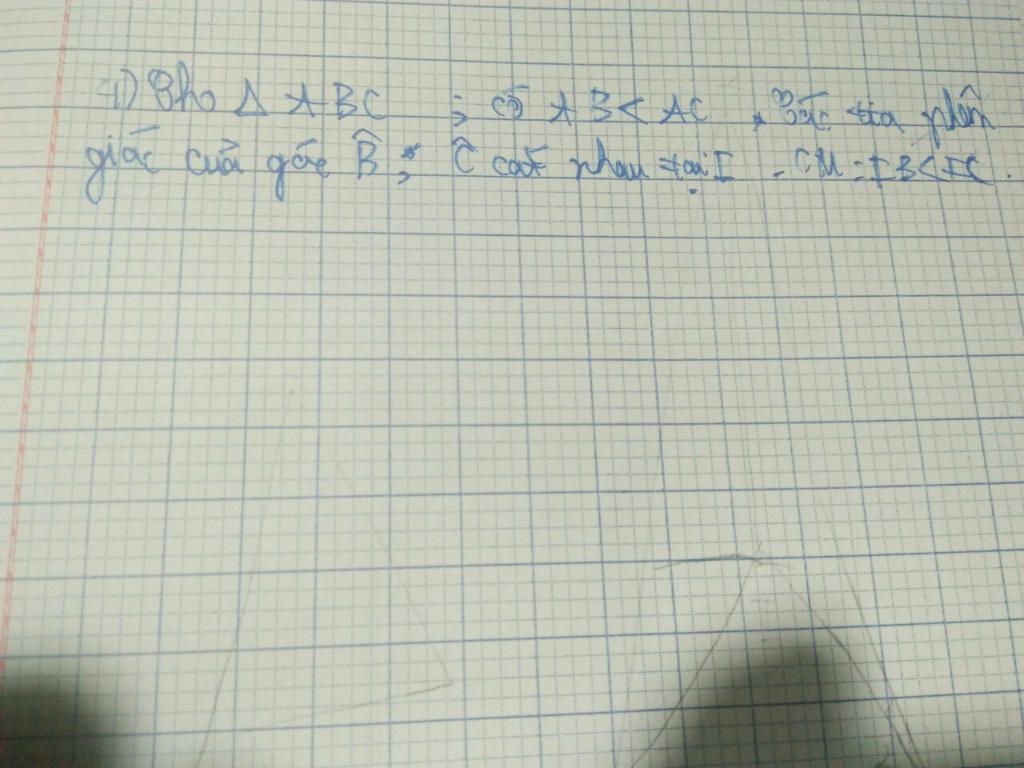 4) Cho Δ ABC ; có AB < AC . Các tia phân
giác của góc B̂ ; Ĉ cắt nhau tại I . CM : IB < IC .